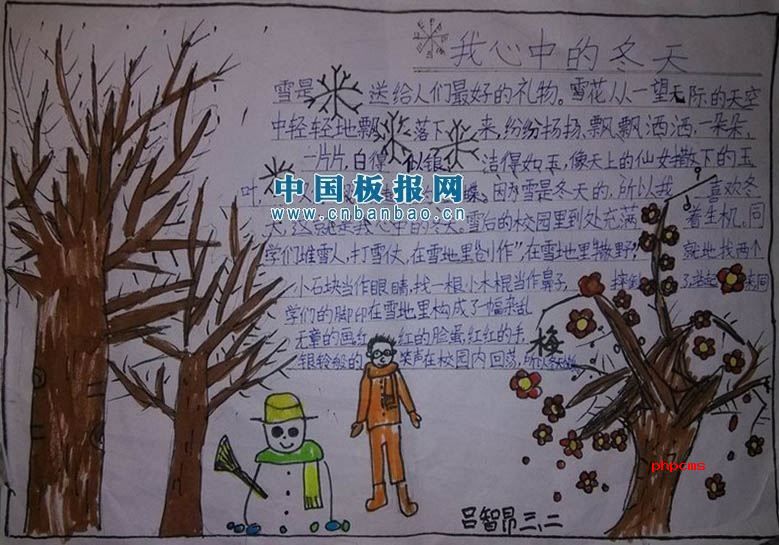 我心中的冬天
雪是 送给人们最好的礼物。雪花从一望无际的天空
中轻轻地飘 落下 来,纷纷扬扬,飘飘洒洒,一朵朵,
一片片,白得 似银 洁得如玉,像天上的仙女撒下的玉
叶, 蝶。因为雪是冬天的,所以我 喜欢冬
中国板报网
www.cnbanbao.cn
天,这就是我心中的冬天。雪后的校园里到处充满 着生机。同
学们堆雪人,打雪仗,在雪地里"创作",在雪地里"撒野", 就地找两个
小石块当作眼睛,找一根小木棍当作鼻子, 摔倒 了,
学们的脚印在雪地里构成了一幅杂乱
无章的画红 红的脸蛋,红红的手,
银铃般的 笑声在校园内回荡,
梅
phpcms
吕智昂三、二